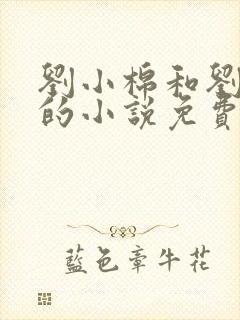 劉小棉和劉
的小說免費
藍色章牛花